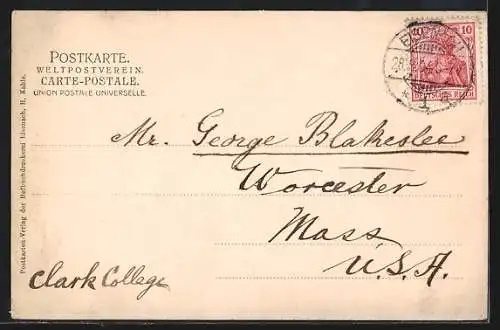 POSTKARTE.
WELTPOSTVEREIN.
CARTE-POSTALE.
UNION POSTALE UNIVERSELLE.
10
DEUTSCHES REICH
Mr. George Blakeslee
Worcester
Mass
U.S.A.
Clark College
Postkarten-Verlag der Hofbuchdruckerei Eisenach, H. Kahle.